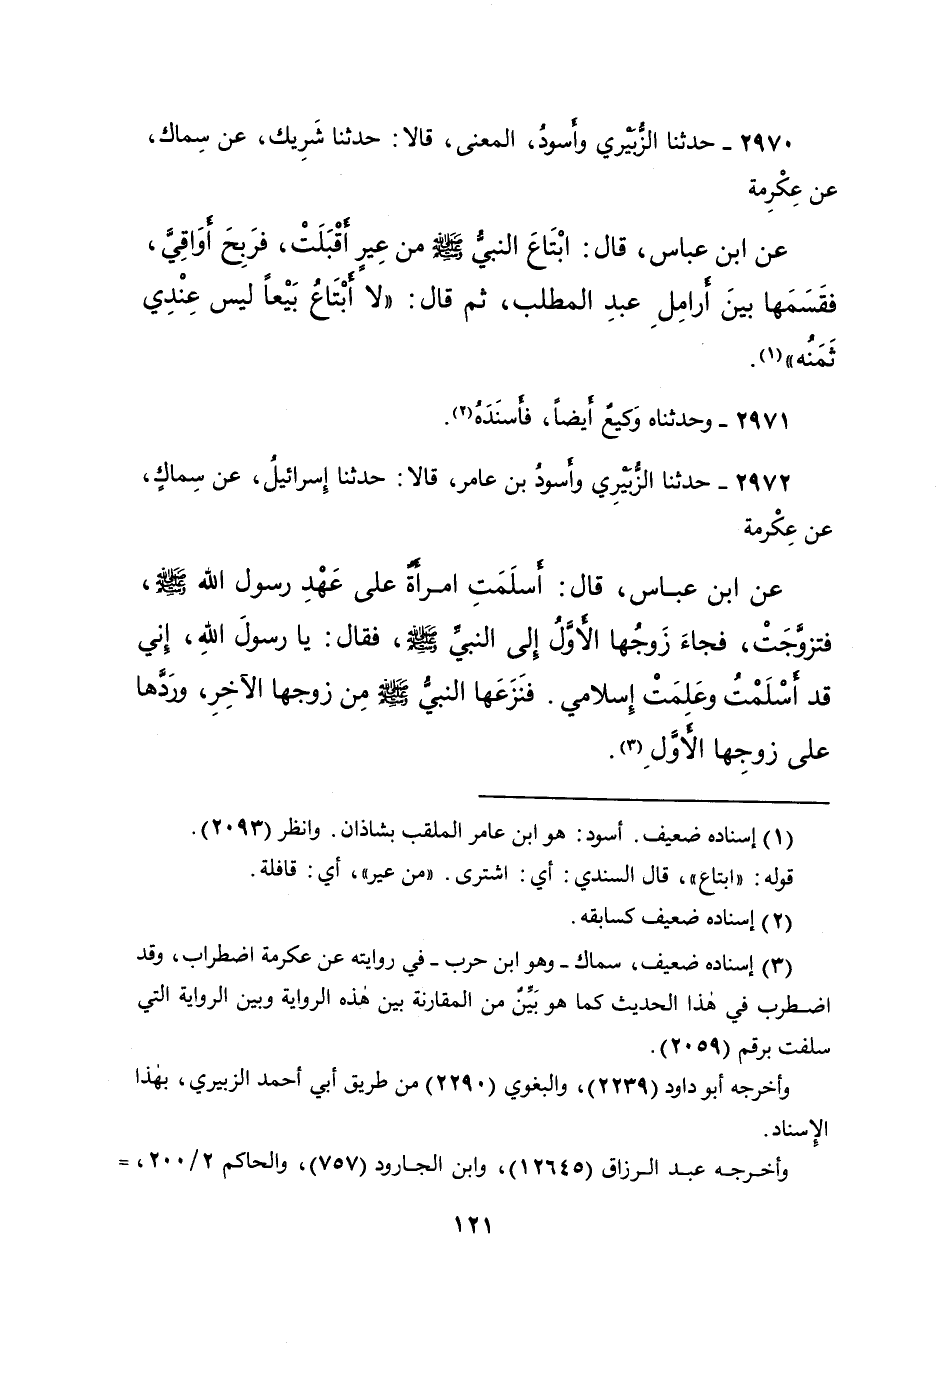 ٢٩٧٠ ـ حدثنا الزُّبَيْري وأَسودُ، المعنى، قالا: حدثنا شَرِيك، عن سِماك،
عن عِكْرِمة
عن ابن عباس، قال: ابْتَاعَ النبيُّ ﷺ من عِيرٍ أَقْبَلَتْ، فرَبِحَ أَوَاقِيَّ،
فقَسَمَها بينَ أَرامِلِ عبدِ المطلب، ثم قال: «لا أَبْتَاعُ بَيْعاً ليس عِنْدِي
ثَمَنُه»(١).
٢٩٧١ ـ وحدثناه وَكيعٌ أَيضاً، فأَسنَدَهُ(٢).
٢٩٧٢ ـ حدثنا الزُّبَيْرِي وأَسودُ بن عامر، قالا: حدثنا إِسرائيلُ، عن سِماكٍ،
عن عِكْرمة
عن ابن عبـاس، قال: أَسلَمَتِ امـرأَةٌ على عَهْدِ رسول الله ﷺ،
فتزوَّجَتْ، فجاءَ زَوجُها الأَوَّلُ إِلى النبيِّ ﷺ، فقال: يا رسولَ اللهِ، إِني
قد أَسْلَمْتُ وعَلِمَتْ إِسلامي. فنَزَعَها النبيُّ ﷺ مِن زوجها الآخِرِ، ورَدَّها
على زوجِها الأَوَّلِ(٣).
(١) إسناده ضعيف. أسود: هو ابن عامر الملقب بشاذان. وانظر (٢٠٩٣).
قوله: «ابتاع»، قال السندي: أي: اشترى. «من عير»، أي: قافلة.
(٢) إسناده ضعيف كسابقه.
(٣) إسناده ضعيف، سماك ـ وهو ابن حرب ـ في روايته عن عكرمة اضطراب، وقد
اضـطرب في هٰذا الحديث كما هو بَيِّنٌ من المقارنة بين هٰذه الرواية وبين الرواية التي
سلفت برقم (٢٠٥٩).
وأخرجه أبو داود (٢٢٣٩)، والبغوي (٢٢٩٠) من طريق أبي أحمد الزبيري، بهٰذا
الإسناد.
وأخـرجـه عبـد الـرزاق (١٢٦٤٥)، وابن الجـارود (٧٥٧)، والحاكم ٢٠٠/٢، =
١٢١